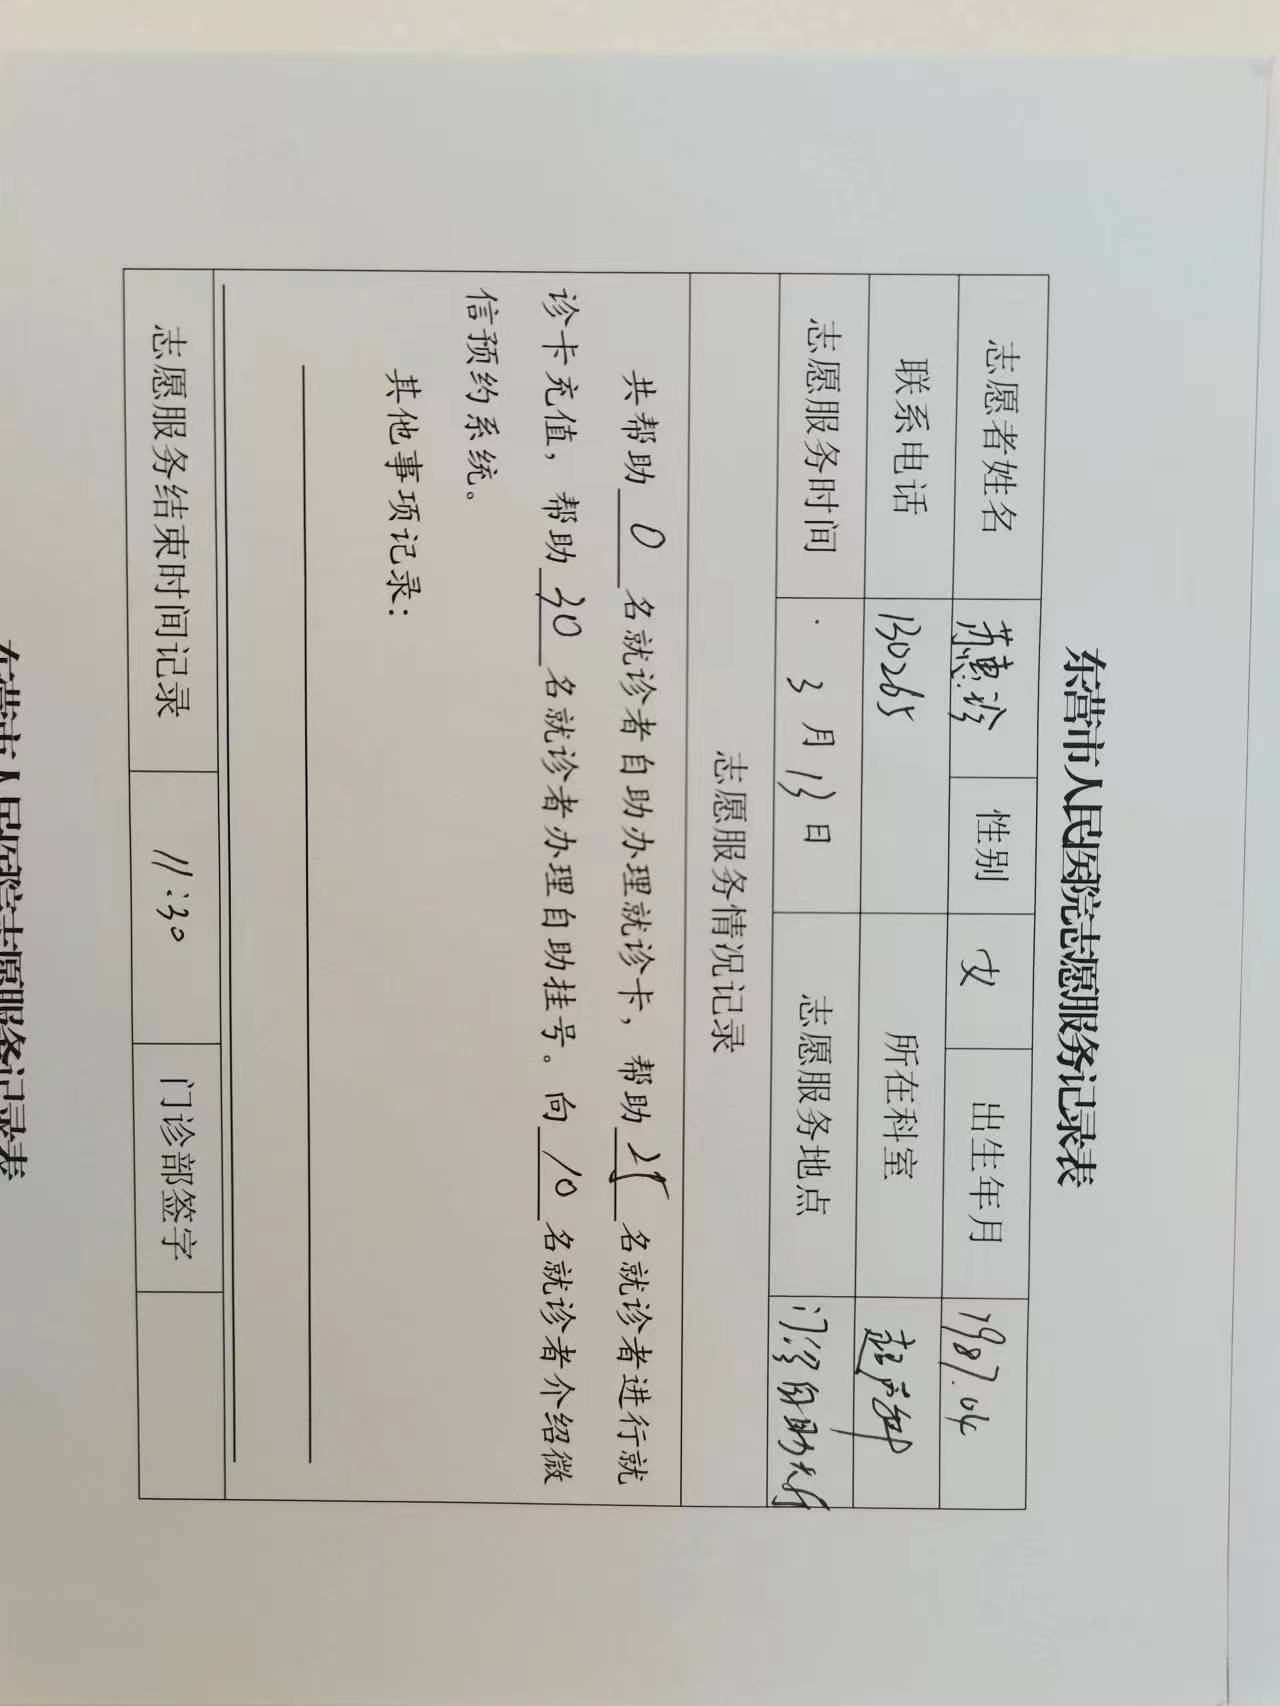 东营市人民医院志愿服务记录表
志愿者姓名 苏惠珍 性别 女 出生年月 1987.04
联系电话 130265 所在科室 超声科
志愿服务时间 3月13日 志愿服务地点 门诊自助大厅
志愿服务情况记录
共帮助 0 名就诊者自助办理就诊卡，帮助 25 名就诊者进行就
诊卡充值，帮助 30 名就诊者办理自助挂号。向 10 名就诊者介绍微
信预约系统。
其他事项记录：
志愿服务结束时间记录 11:30 门诊部签字
东营市人民医院志愿服务记录表